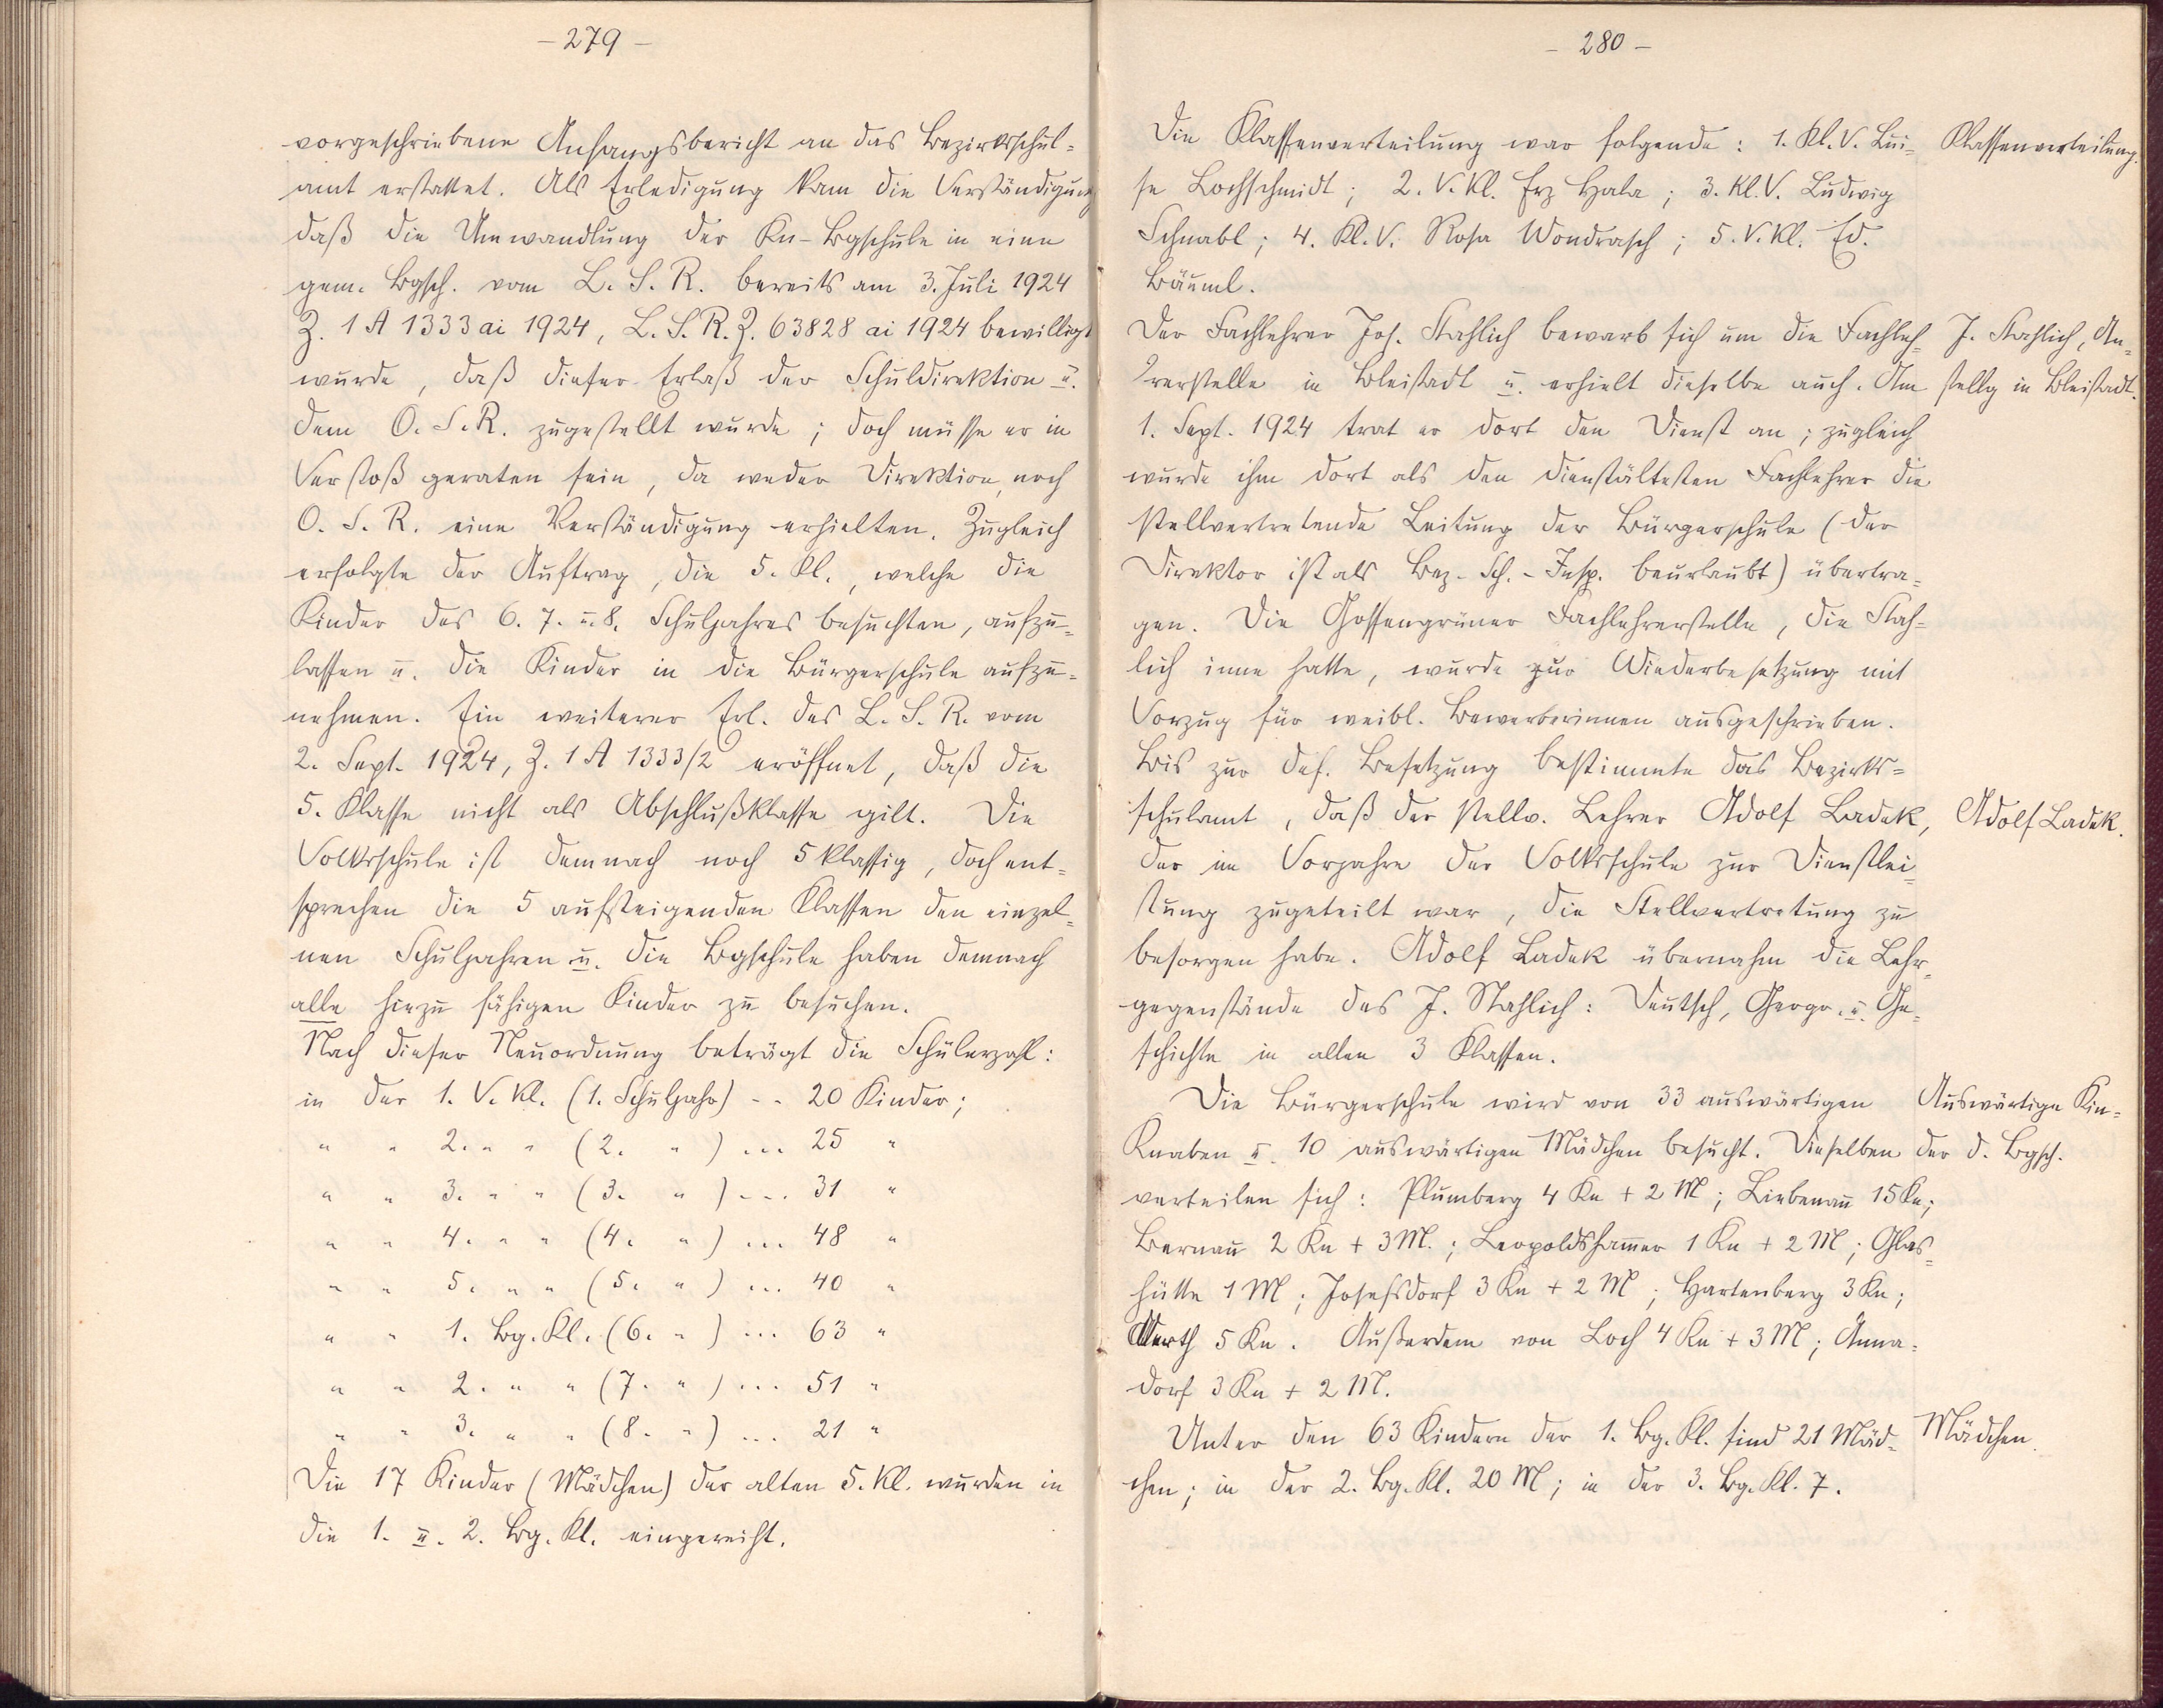 - 279 -
vorgeschriebene Anfangsbericht an das Bezirksschul-
amt erstattet. Als Erledigung kam die Verständigung
daß die Umwandlung der Kn-Bgschule in eine
gem. Bgsch. vom L. S. R. bereits am 3. Juli 1924
Z. 1 A 1333 ai 1924, L. S. R. Z. 63828 ai 1924 bewilligt
wurde, daß dieser Erlaß der Schuldirektion u.
dem O. S. R. zugestellt wurde; doch müsse er in
Verstoß geraten sein, da weder Direktion, noch
O. S. R. eine Verständigung erhielten. Zugleich
erfolgte der Auftrag, die 5. Kl., welche die
Kinder des 6. 7. u. 8. Schuljahres besuchten, aufzu-
lassen u. die Kinder in die Bürgerschule aufzu-
nehmen. Ein weiterer Erl. des L. S. R. vom
2. Sept. 1924, Z. 1 A 1333/2 eröffnet, daß die
5. Klasse nicht als Abschlußklasse gilt. Die
Volksschule ist demnach noch 5 klassig, doch ent-
sprechen die 5 aufsteigenden Klassen den einzel-
nen Schuljahren u. die Bgschule haben demnach
alle hiezu fähigen Kinder zu besuchen.
Nach dieser Neuordnung beträgt die Schülerzahl:
in der 1. V. Kl. (1. Schuljahr) -- 20 Kinder;
" " 2. " " (2. " ) ... 25 "
" " 3. " " (3. " ) ... 31 "
" " 4. " " (4. " ) ... 48 "
" " 5. " " (5. " ) ... 40 "
" " 1. Bg. Kl. (6. " ) ... 63 "
" " 2. " " (7. " ) ... 51 "
" " 3. " " (8. " ) ... 21 "
Die 17 Kinder (Mädchen) der alten 5. Kl. wurden in
die 1. u. 2. Bg. Kl. eingereiht.
- 280 -
Die Klassenverteilung war folgende: 1. Kl. V. Lui-
Klassenverteilung.
se Lochschmidt; 2. V. Kl. Frz Hala; 3. Kl. V. Ludwig
Schnabl; 4. Kl. V. Rosa Wondrasch; 5. V. Kl. Ed.
Bäuml.
Der Fachlehrer Joh. Stahlich bewarb sich um die Fachleh-
J. Stahlich, An-
rerstelle in Bleistadt u. erhielt dieselbe auch. Am
stellg in Bleistadt.
1. Sept. 1924 trat er dort den Dienst an; zugleich
wurde ihm dort als den dienstältesten Fachlehrer die
stellvertretende Leitung der Bürgerschule (der
Direktor ist als Bez.-Sch.-Insp. beurlaubt) übertra-
gen. Die Gossengrüner Fachlehrerstelle, die Stah-
lich inne hatte, wurde zur Wiederbesetzung mit
Vorzug für weibl. Bewerberinnen ausgeschrieben.
Bis zur def. Besetzung bestimmte das Bezirks-
schulamt, daß der stellv. Lehrer Adolf Ladek,
Adolf Ladek.
der im Vorjahre der Volksschule zur Dienstlei-
stung zugeteilt war, die Stellvertretung zu
besorgen habe. Adolf Ladek übernahm die Lehr-
gegenstände des J. Stahlich: Deutsch, Geogr. u. Ge-
schichte in allen 3 Klassen.
Die Bürgerschule wird von 33 auswärtigen
Auswärtige Kin-
Knaben u. 10 auswärtigen Mädchen besucht. Dieselben
der d. Bgsch.
verteilen sich: Plumberg 4 Kn + 2 M; Liebenau 15 Kn;
Bernau 2 Kn + 3 M.; Leopoldshammer 1 Kn + 2 M; Glas-
hütte 1 M; Josefsdorf 3 Kn + 2 M; Hartenberg 3 Kn;
Werth 5 Kn. Außerdem von Loch 4 Kn + 3 M; Anna-
dorf 3 Kn + 2 M.
Unter den 63 Kindern der 1. Bg. Kl. sind 21 Mäd-
Mädchen.
chen; in der 2. Bg. Kl. 20 M; in der 3. Bg. Kl. 7.